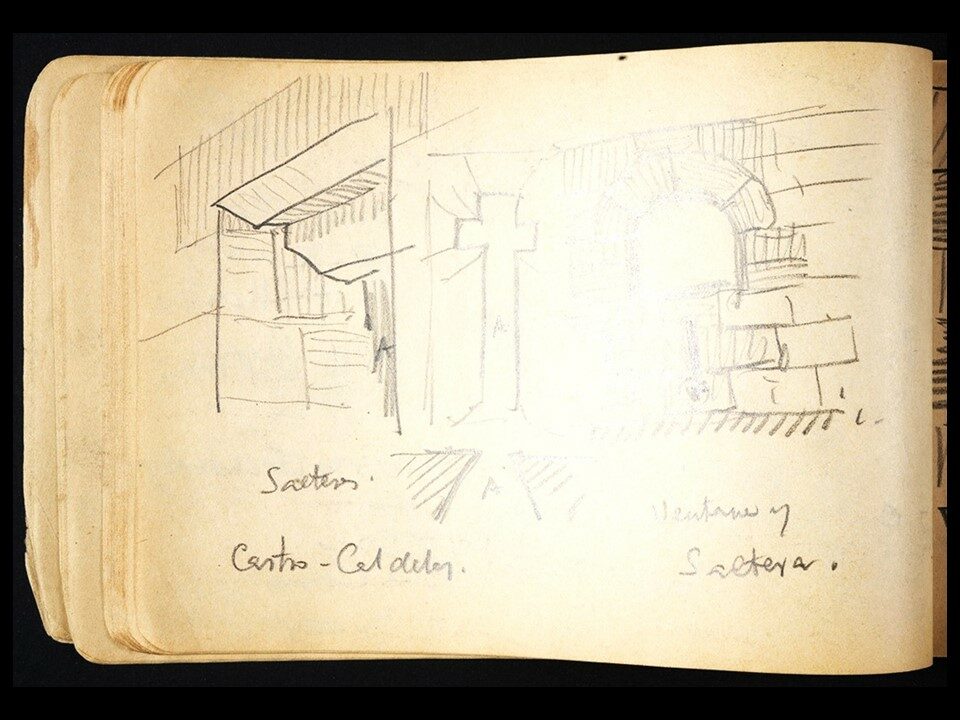 A
A
A
Saetera.
Castro-Caldelas.
Ventana y
Saetera.